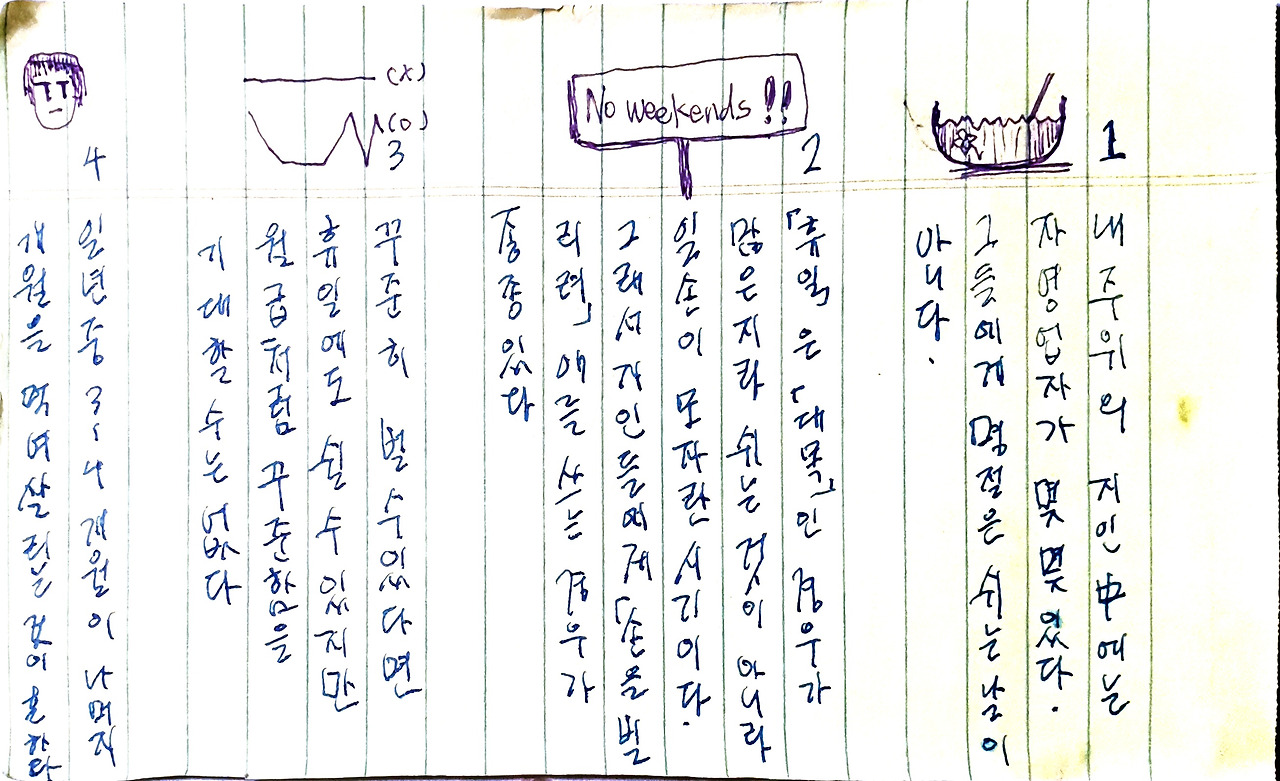 1
내 주위의 지인中에는
자영업자가 몇몇 있다.
그들에게 명절은 쉬는 날이
아니다.
No weekends!!
2
「휴일」은 「대목」인 경우가
많은지라 쉬는 것이 아니라
일손이 모자란 시기이다.
그래서 지인들에게 「손을 벌
리려」 애를 쓰는 경우가
종종 있다
(X)
(O)
3
꾸준히 벌 수 있다면
휴일에도 쉴 수 있지만
월급처럼 꾸준함을
기대할 수는 없다
4
일년중 3~4개월이 나머지
개월을 먹여살리는 것이 흔하다